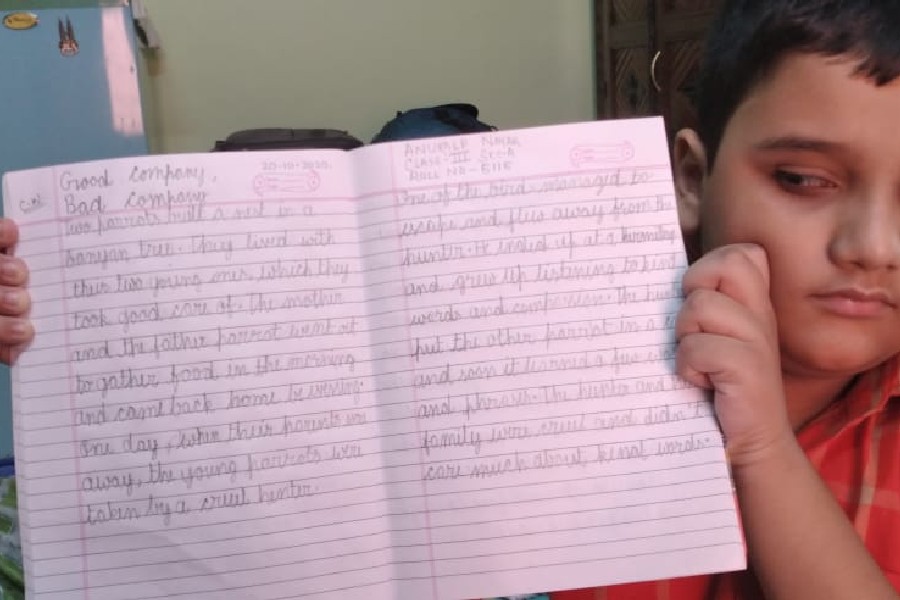 C.W.
Good Company,
Bad Company
20-10-2020
two parrots built a nest in a
banyan tree. They lived with
their two young ones which they
took good care of. the mother
and the father parrot went ot
to gather food in the morning
and came back home be
one day, when their parents we
away, the young parrots were
taken by a cruel hunter.
CLASS-III SEC-A
ROLL NO-
One of the bird managed to
escape and flew away from the
hunter. He ended up at a
and grew up listening to kind
words and The
put the other parrot in a
and soon it learned a few
and phrases. The hunter and
family were cruel and didn't
care much about kind words.